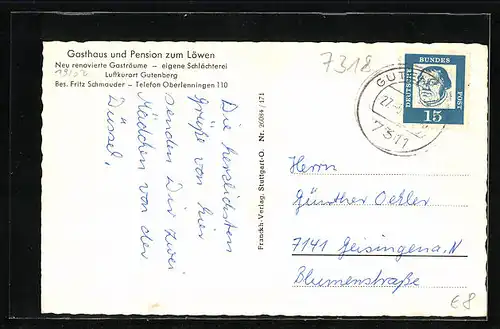 Gasthaus und Pension zum Löwen
Neu renovierte Gasträume – eigene Schlächterei
Luftkurort Gutenberg
Bes. Fritz Schmauder – Telefon Oberlenningen 110
7318
Die herzlichsten
Grüße von hier
senden Dir zwei
Mädchen von der
Düssel.
Franckh-Verlag, Stuttgart-O. Nr. 26084/171
GUT
7311
DEUTSCHE
BUNDES
POST
15
Herrn
Günther Oehler
7141 Geisingen a. N
Blumenstraße
€8